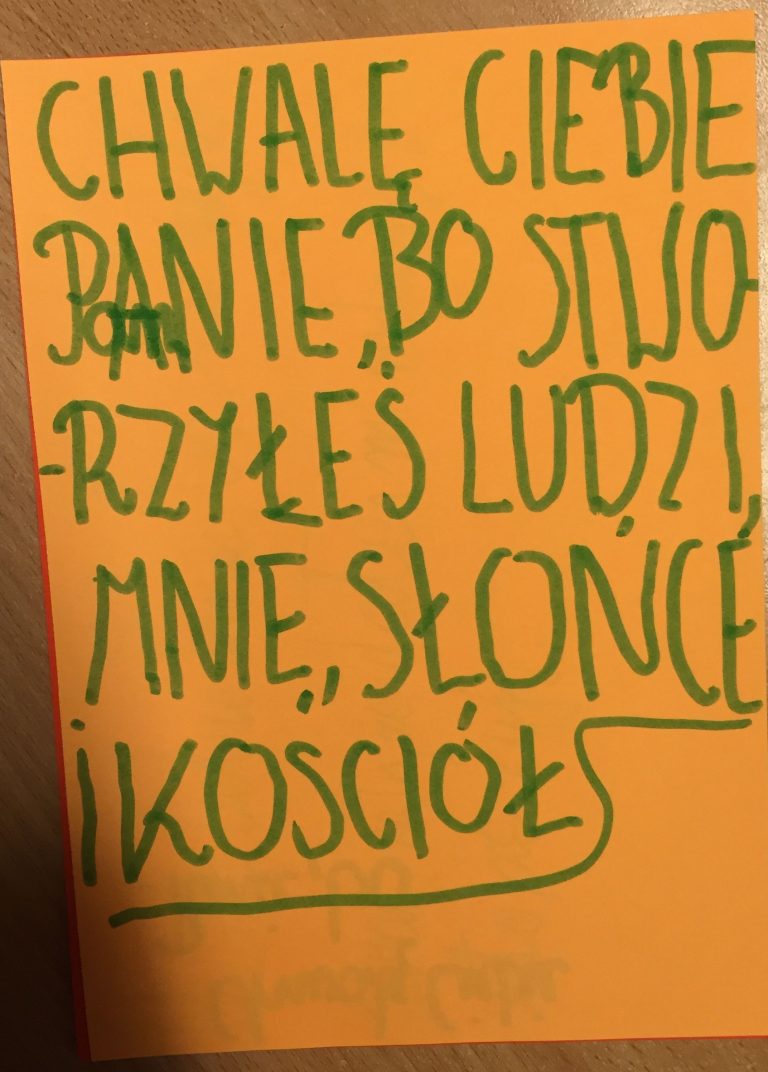 CHWALĘ CIEBIE
PANIE, BO STWO-
-RZYŁEŚ LUDZI,
MNIE, SŁOŃCE
i KOŚCIÓŁ